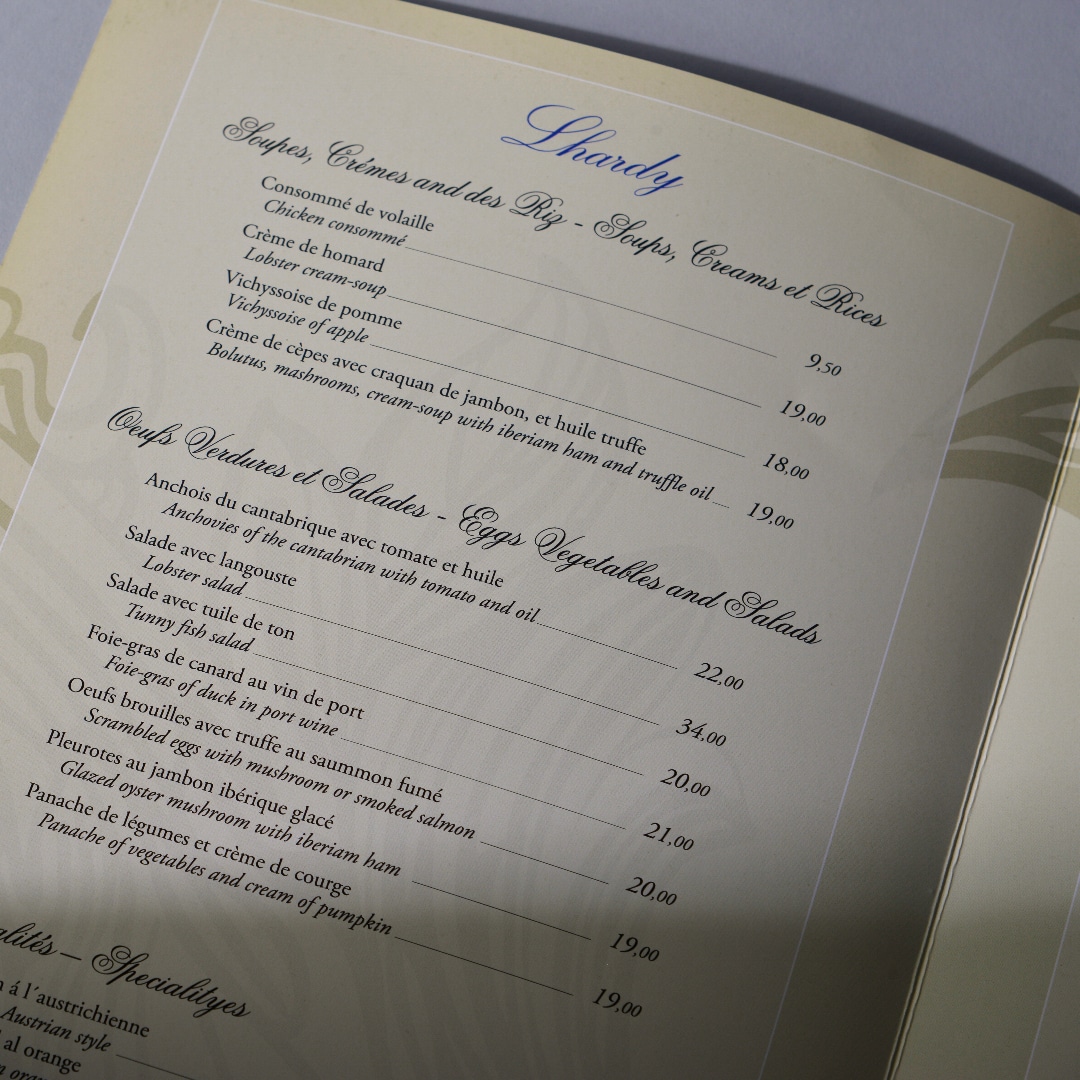 Lhardy
Soupes, Crémes and des Riz - Soups, Creams et Rices
Consommé de volaille
Chicken consommé 9,50
Crème de homard
Lobster cream-soup 19,00
Vichyssoise de pomme
Vichyssoise of apple 18,00
Crème de cèpes avec craquan de jambon, et huile truffe
Bolutus, mashrooms, cream-soup with iberiam ham and truffle oil 19,00
Oeufs Verdures et Salades - Eggs Vegetables and Salads
Anchois du cantabrique avec tomate et huile
Anchovies of the cantabrian with tomato and oil 22,00
Salade avec langouste
Lobster salad 34,00
Salade avec tuile de ton
Tunny fish salad 20,00
Foie-gras de canard au vin de port
Foie-gras of duck in port wine 21,00
Oeufs brouilles avec truffe au saummon fumé
Scrambled eggs with mushroom or smoked salmon 20,00
Pleurotes au jambon ibérique glacé
Glazed oyster mushroom with iberiam ham 19,00
Panache de légumes et crème de courge
Panache of vegetables and cream of pumpkin 19,00
– Specialityes
á l´austrichienne
Austrian style
al orange